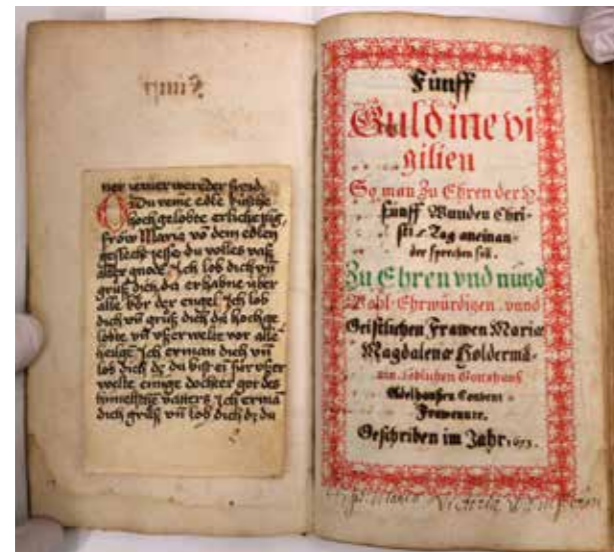 Fünff
ner iemer werender freud.
O Du reine edle küsche
hoch gelobte erliche jüg
frow Maria vō dem edlen
geslecht jesse du volles vaß
aller gnode Ich lob dich vn̄
grüß dich da erhabne über
alle kör der engel Ich lob
dich vn̄ grüß dich da hochge
lobte vn̄ vßer welte vor alle
heilge Ich erman dich vn̄
lob dich dz du bist ei für vßer
welte einige dochter got des
himelschē vatters Ich ermā
dich grüß vn̄ lob dich dz du
Fünff
Guldine vi
gilien
So man Zu Ehren der H.
fünff Wunden Chri-
sti 5 Tag aneinan-
der sprechen soll.
Zu Ehren vnd nutzd
Wohl-Ehrwürdigen vnnd
Geistlichen Frawen Mariæ
Magdalenæ Holdermä-
nin, Löblichen Gottshauß
Adelhaußen Convent-
Frawenn.
Geschriben im Jahr 1673.
Maria Victoria